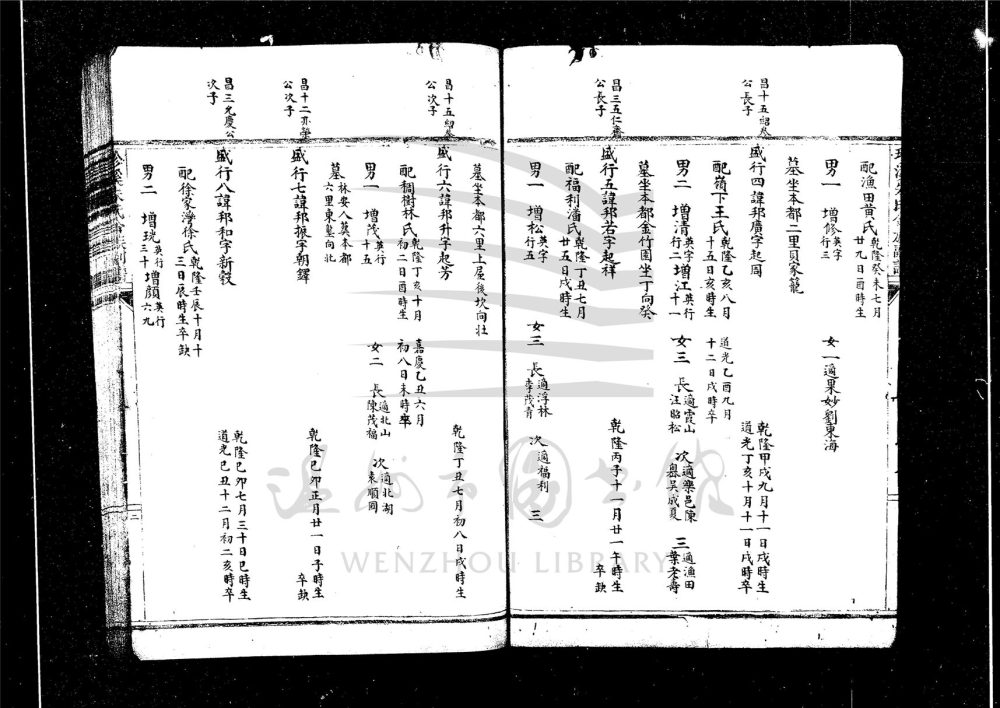 配漁田黃氏 乾隆癸未七月廿九日酉時生
男一 增修 英字行三 女一適果妙劉東海
墓坐本都二里貝家籠
昌十五紹叄公長子
盛行四諱邦廣字起周 乾隆甲戌九月十一日戌時生 道光丁亥十月十一日戌時卒
配嶺下王氏 乾隆乙亥八月十五日亥時生 道光乙酉九月十二日戌時卒
男二 增清 英字行二 增江 英行十一 女三 長 適霞山汪昭松 次 適樂邑陳嶴吳成夏 三 適漁田葉老壽
墓坐本都金竹園坐丁向癸
昌三五仁 公長子
盛行五諱邦若字起祥 乾隆丙子十一月廿一午時生 卒缺
配福利潘氏 乾隆丁丑七月廿五日戌時生
男一 增松 英字行五 女三 長 適浮林李茂青 次 適福利 三
墓坐本都六里上屋後坎向壯
昌十五紹叄公次子
盛行六諱邦升字起芳 乾隆丁丑七月初八日戌時生
配稠樹林氏 乾隆丁亥十月初二日酉時生 嘉慶乙丑六月初八日未時卒
男一 增茂 英行十五 女二 長 適北山陳茂福 次 適北湖袁順岡
墓 林安人葬本都六里東嶴向北
昌十二亦華公次子
盛行七諱邦振字朝鐸 乾隆己卯正月廿一日子時生 卒缺
昌三九慶公次子
盛行八諱邦和字新穀 乾隆己卯七月三十日巳時生 道光己丑十二月初二亥時卒
配徐家淨徐氏 乾隆壬辰十月十三日辰時生卒缺
男二 增珖 英行三十 增顏 英行六九
溫州市圖書館
WENZHOU LIBRARY